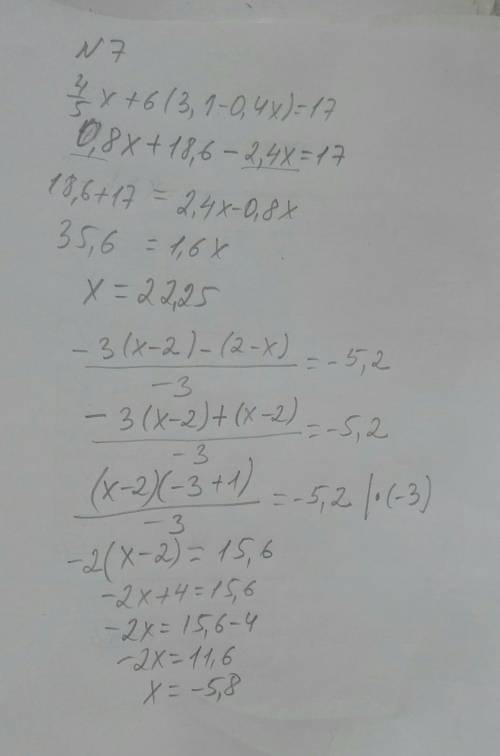 N7
4/5 x + 6(3,1-0,4x)=17
0,8x+18,6-2,4x=17
18,6+17 = 2,4x-0,8x
35,6 = 1,6x
x = 22,25
-3(x-2)-(2-x)/-3 = -5,2
-3(x-2)+(x-2)/-3 = -5,2
(x-2)(-3+1)/-3 = -5,2 |·(-3)
-2(x-2) = 15,6
-2x+4=15,6
-2x=15,6-4
-2x=11,6
x = -5,8